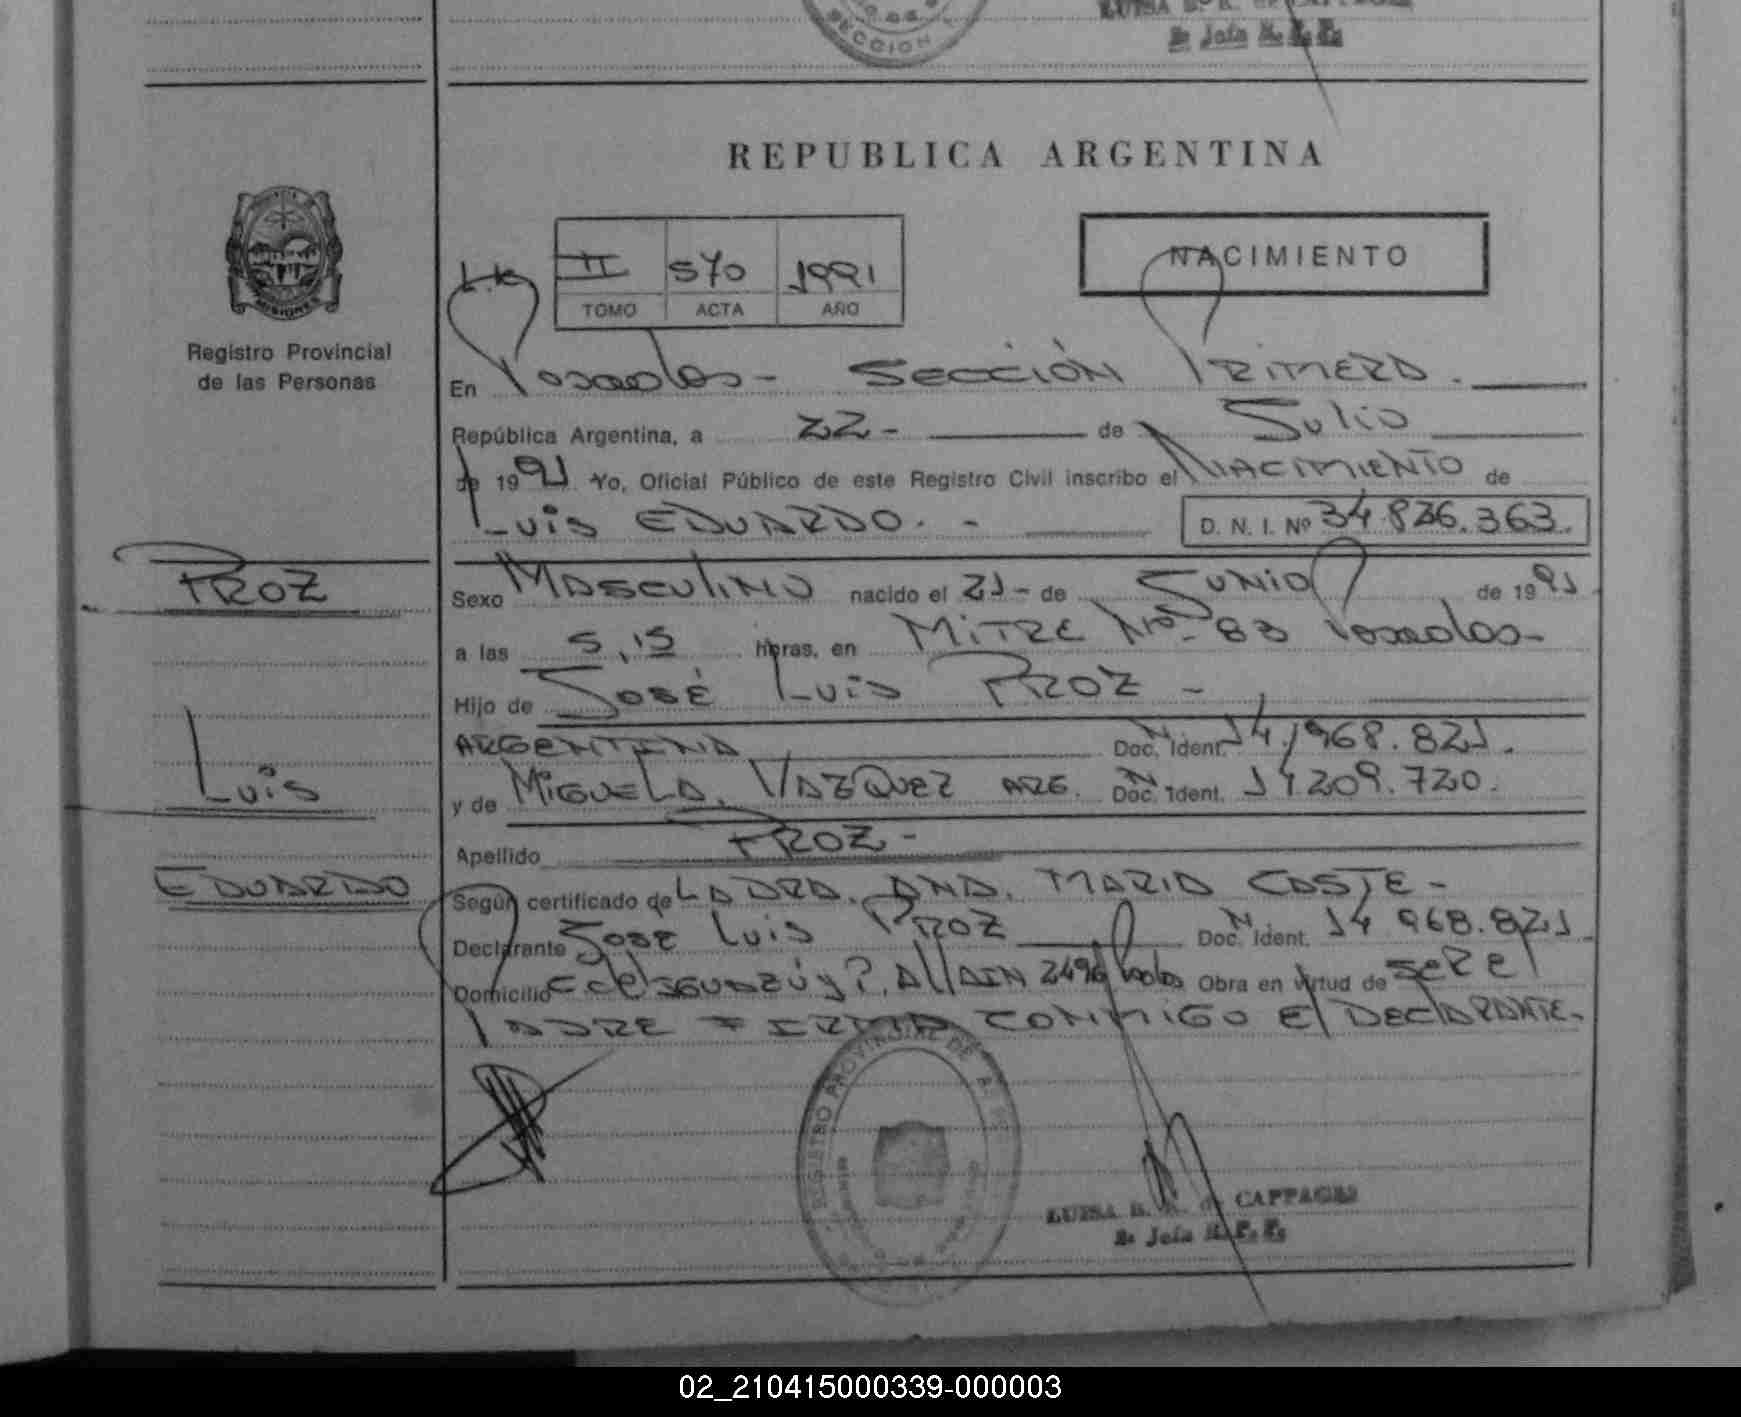 SECCION
LUISA
2a Jefa
REPUBLICA ARGENTINA
NACIMIENTO
II 570 1991
TOMO ACTA AÑO
Registro Provincial
de las Personas
En Posadas- SECCIÓN PRIMERA.
República Argentina, a 22- de JULIO
de 1991 Yo, Oficial Público de este Registro Civil inscribo el NACIMIENTO de
LUIS EDUARDO. -
D. N. I. Nº 34.836.363.
PROZ
Sexo MASCULINO nacido el 21- de JUNIO de 1991
a las 5,15 horas, en MITRE Nº- 83 Posadas-
Hijo de JOSÉ LUIS PROZ -
ARGENTINA Doc. N Ident. 14.968.821.
LUIS
y de MIGUELA. VAZQUEZ ARG. Doc. N Ident. 14.209.720.
Apellido PROZ-
EDUARDO
Según certificado de LA DRA. ANA. MARIA COSTE-
Declarante JOSE LUIS PROZ Doc. N Ident. 14 968.821
Domicilio Obra en virtud de SER EL
PADRE FIRMA CONMIGO El DECLARANTE-
REGISTRO PROVINCIAL DE
LUISA
2a Jefa
02_210415000339-000003